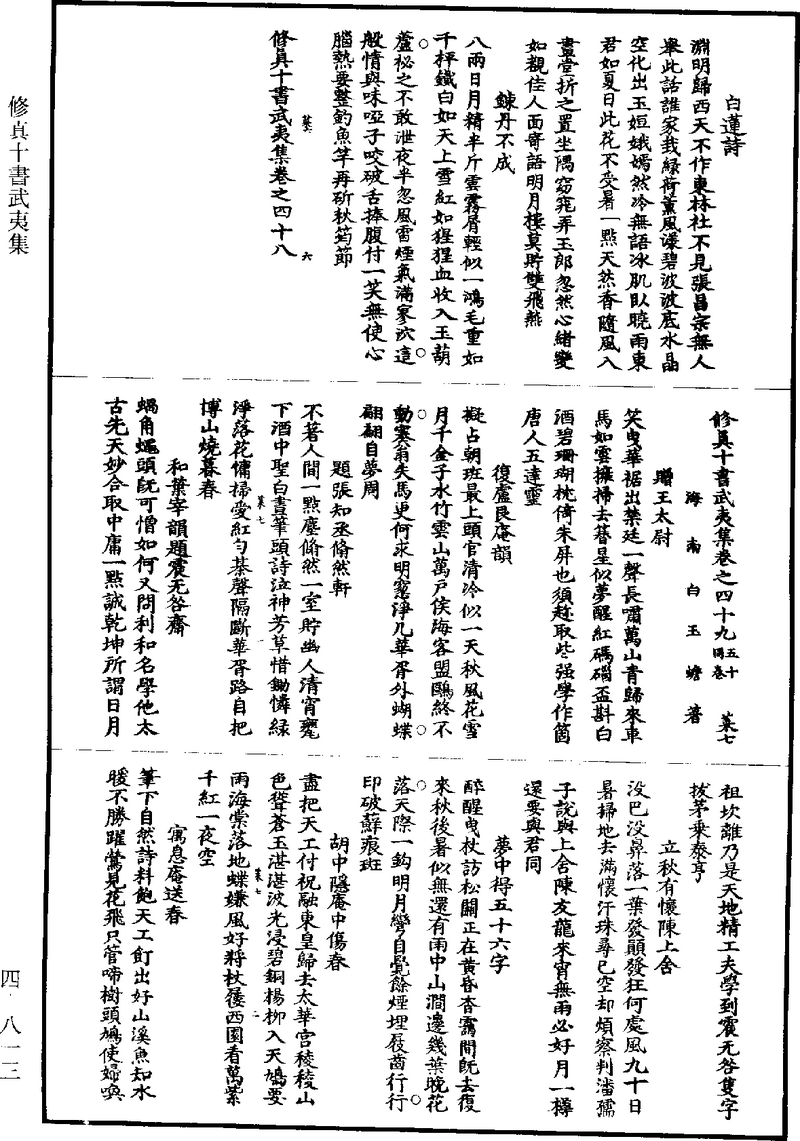 修真十書武夷集
白蓮詩
淵明歸西天不作東林社不見張昌宗無人
舉此話誰家栽綠荷薰風濛碧波波底水晶
空化出玉姮娥嫣然冷無語冰肌臥曉雨東
君如夏日此花不受暑一點天然香隨風入
畫堂折之置坐隅窈窕弄玉郎忽然心緒變
如觀佳人面寄語明月樓莫貯雙飛燕
鍊丹不成
八兩日月精半斤雲霧屑輕似一鴻毛重如
千秤鐵白如天上雪紅如猩猩血收入玉葫
蘆秘之不敢泄夜半忽風雷煙氣滿寥泬這
般情與味啞子咬破舌捧腹付一笑無使心
腦熱要整釣魚竿再斫秋筠節
修真十書武夷集卷之四十八
菜六 六
修真十書武夷集卷之四十九 五十同卷 菜七
海南白玉蟾著
贈王太尉
笑曳華裾出禁廷一聲長嘯萬山青歸來車
馬如雲擁掃去暮星似夢醒紅碼碯盃斟白
酒碧珊瑚枕倚朱屏也須趁取些强學作箇
唐人五達靈
復盧艮庵韻
擬占朝班最上頭官清冷似一天秋風花雪
月千金子水竹雲山萬戶侯海客盟鷗終不
動塞翁失馬更何求明窻淨几華胥外蝴蝶
翩翩自夢周
題張知丞翛然軒
不著人間一點塵翛然一室貯幽人清宵甕
下酒中聖白晝筆頭詩泣神芳草惜鋤憐綠
淨落花慵掃愛紅勻棊聲隔斷華胥路自把
菜七 一
博山燒暮春
和葉宰韻題震无咎齋
蝸角蠅頭旣可憎如何又問利和名學他太
古先天妙合取中庸一點誠乾坤所謂日月
祖坎離乃是天地精工夫學到震无咎隻字
拔茅乗泰亨
立秋有懷陳上舍
没巴没鼻落一葉發顛發狂何處風九十日
暑掃地去滿懷汗珠尋已空却煩察判潘孺
子說與上舍陳友龍來宵無雨必好月一樽
還要與君同
夢中得五十六字
醉醒曳杖訪松關正在黄昏杳靄間旣去復
來秋後暑似無還有雨中山澗邊幾葉晚花
落天際一鈎明月彎自覺餘煙埋屐齒行行
印破蘚痕班
胡中隱庵中傷春
盡把天工付祝融東皇歸去太華宮稜稜山
色聳蒼玉湛湛波光浸碧銅楊柳入天鳩要
菜七 二
雨海棠落地蝶嫌風好將杖屨西園看萬紫
千紅一夜空
寓息庵送春
筆下自然詩料飽天工飣出好山溪魚知水
暖不勝躍鶯見花飛只管啼樹頭鳩使婦喚
四·八一三